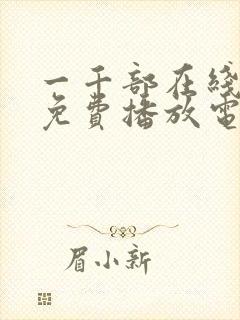 一千部在线
免費播放電
眉小新